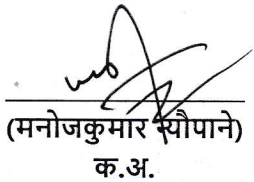 (मनोजकुमार न्यौपाने)
क.अ.